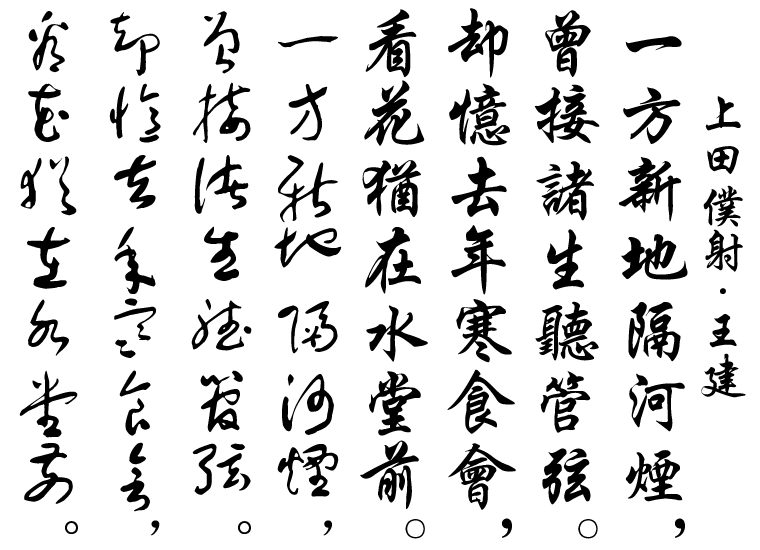 上田僕射·王建
一方新地隔河煙，
曾接諸生聽管弦。
却憶去年寒食會，
看花猶在水堂前。
一方新地隔河煙，
曾接諸生聽管弦。
却憶去年寒食會，
看花猶在水堂前。